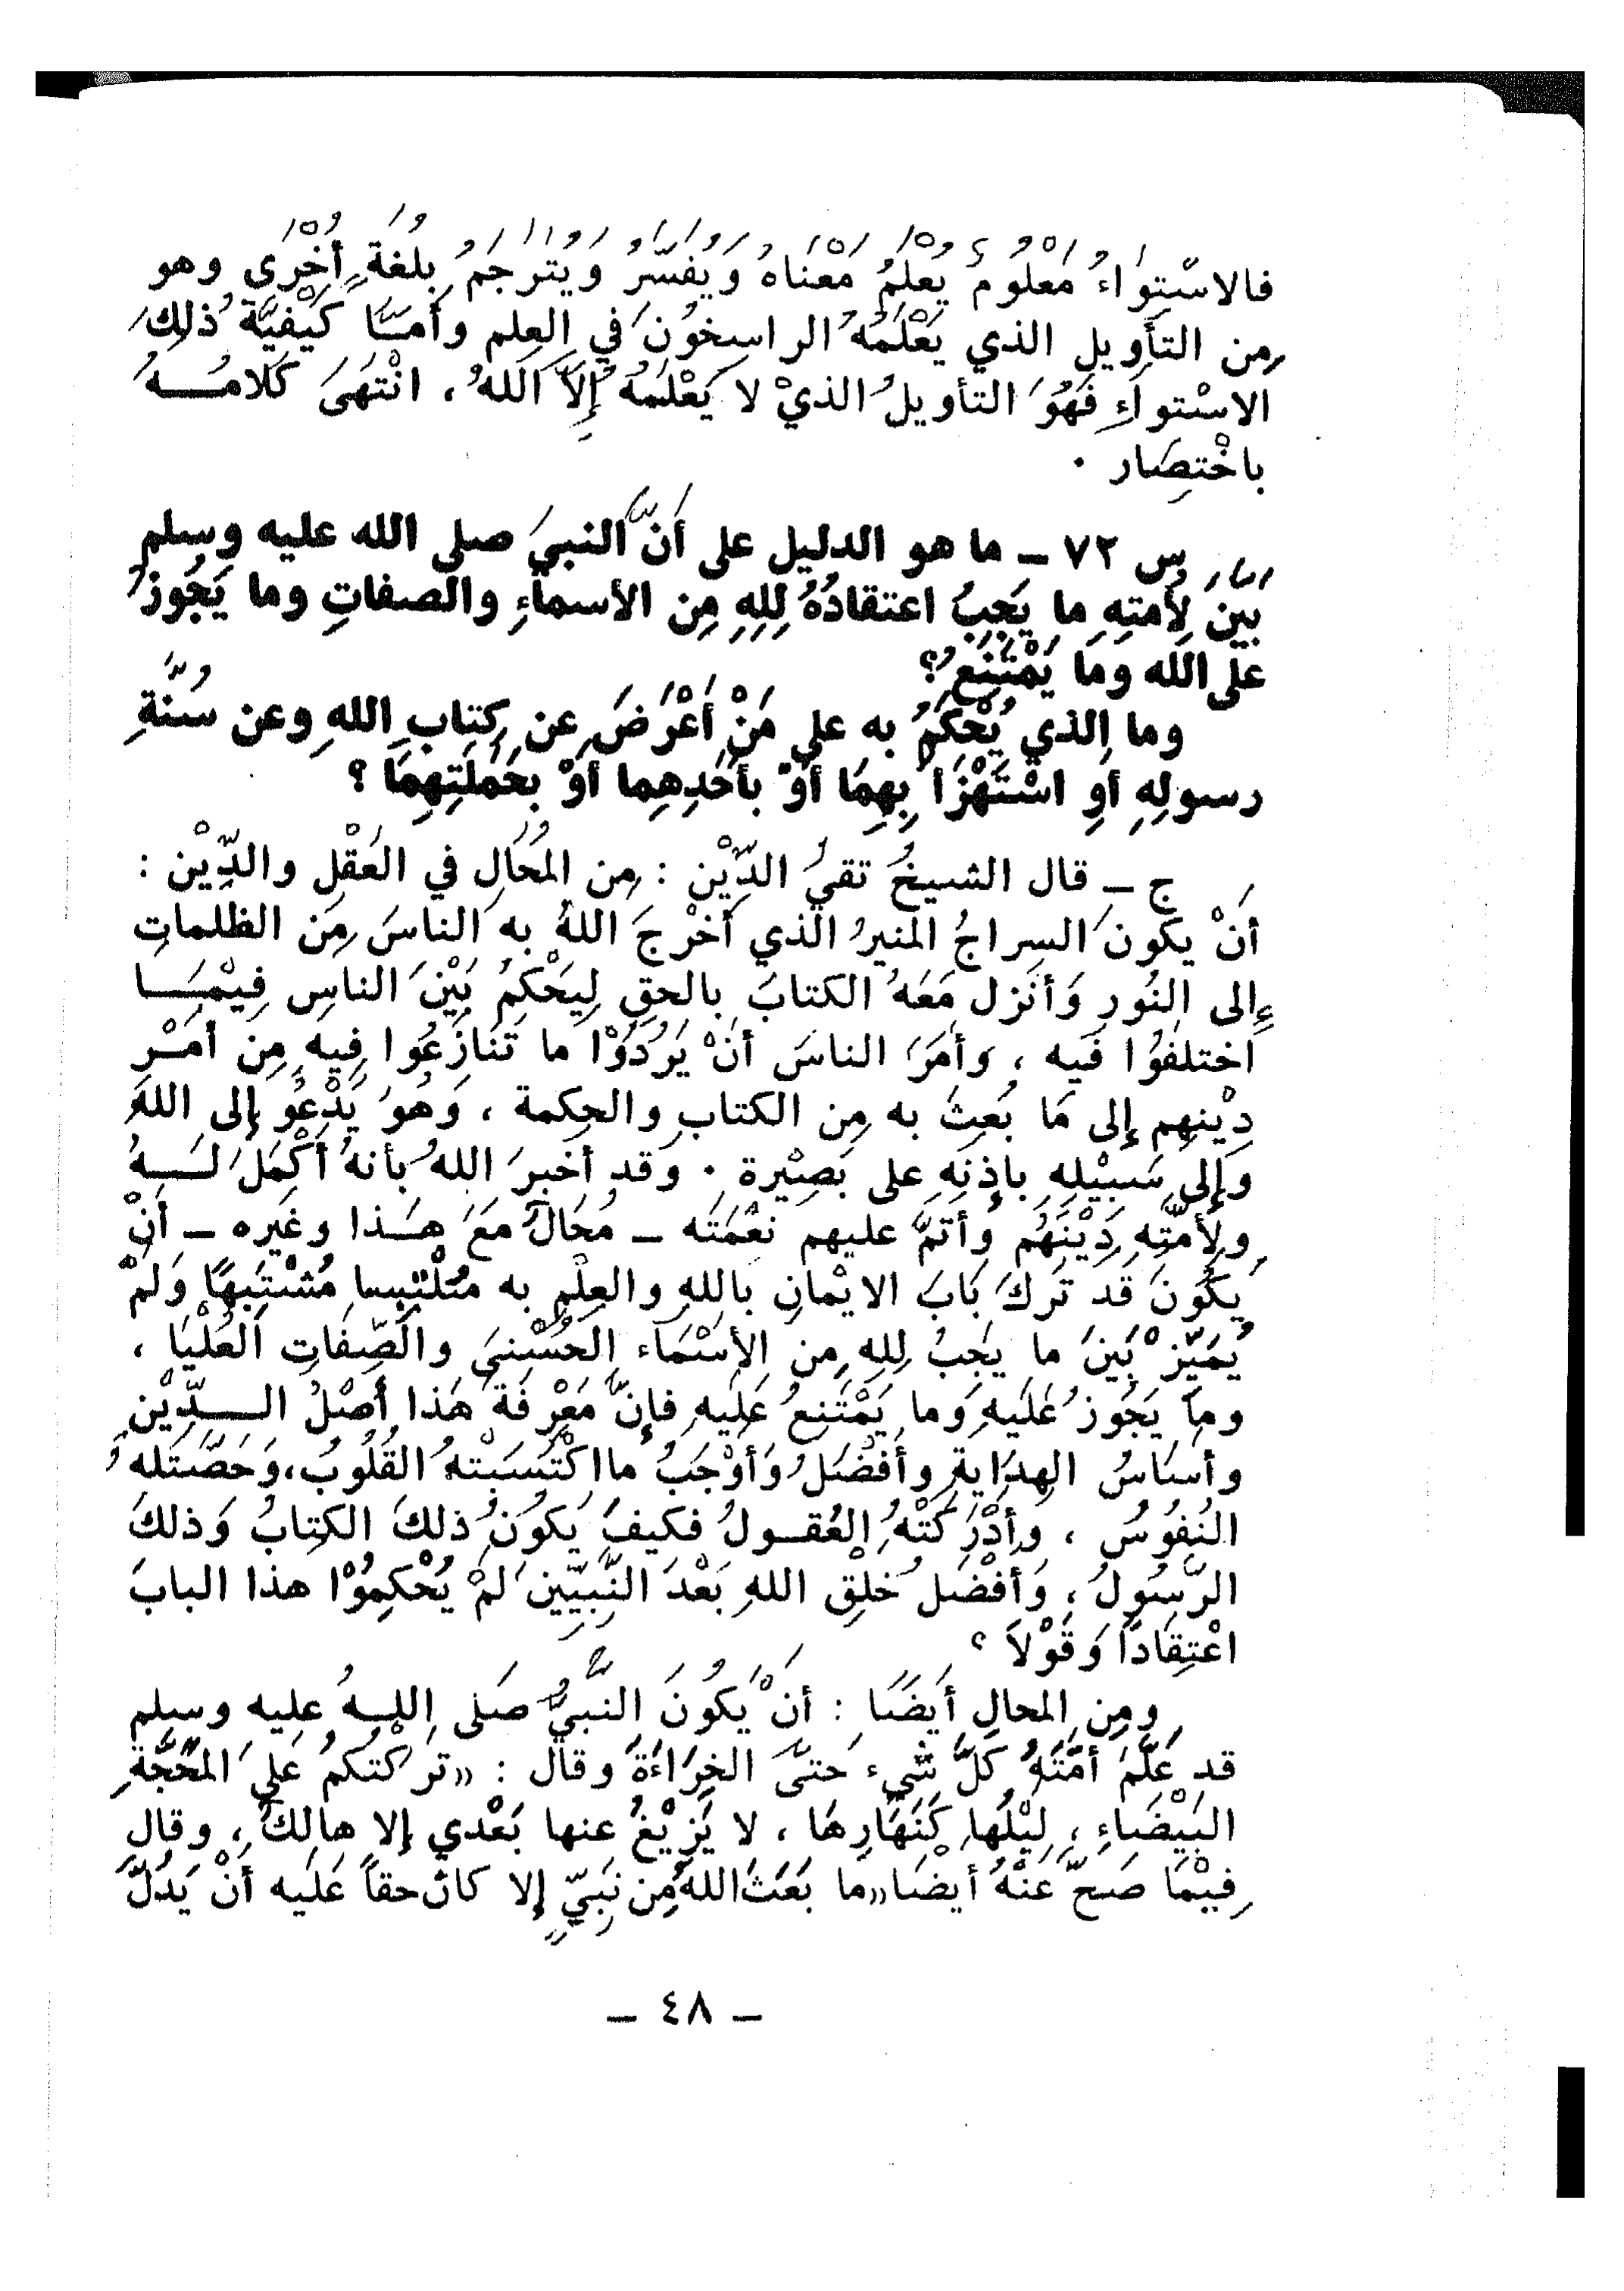 فالاسْتِوَاءُ مَعْلُومٌ يُعْلَمُ مَعْنَاهُ وَيُفَسَّرُ وَيُتَرْجَمُ بِلُغَةٍ أُخْرَى وهو
مِن التأويلِ الذي يَعْلَمُهُ الراسِخُونَ في العِلم وأَمَّا كَيْفِيَّةُ ذلِكَ
الاسْتواءِ فَهُوَ التأويلُ الذيْ لا يَعْلَمُهُ إِلاَّ اللهُ ، انْتَهَىَ كَلامُهُ
باخْتِصَار ٠
س ٧٢ ــ ما هو الدليل على أَنَّ النبيَ صلى الله عليه وسلم
بَيَّنَ لِأُمَّتِهِ ما يَجِبُ اعتقادُهُ لِلهِ مِن الأسماءِ والصفاتِ وما يَجُوزُ
على الله ومَا يَمْتَنِعُ؟
وما الذي يُحْكَمُ به على مَنْ أَعْرَضَ عن كِتابِ اللهِ وعن سُنَّةِ
رسولِهِ أوِ اسْتَهْزَأَ بِهِمَا أوْ بأَحَدِهِما أوْ بِحَمَلَتِهِمَا ؟
ج ــ قال الشيخُ تقيُ الدِّيْن : مِن المُحَالِ في العَقْلِ والدِّيْن :
أَنْ يكونَ السِراجُ المنيرُ الذي أَخْرجَ اللهُ به الناسَ مِن الظلماتِ
إِلى النُورِ وَأنزل مَعَهُ الكتابَ بالحقِ لِيَحْكمُ بَيْنَ الناسِ فِيْمَا
اختلفُوا فيه ، وَأمَرَ الناسَ أنْ يَرُدُوْا ما تَنَازَعُوا فِيهِ مِن أمْرِ
دِيْنِهِم إِلى مَا بُعِثَ به مِن الكتابِ والحِكمة ، وَهُوَ يَدْعُو إلى اللهِ
وَإِلى سَبِيْلِهِ بإِذنِهِ على بَصِيْرة ٠ وَقد أخبرَ اللهُ بأنهُ أَكْمَلَ لَهُ
ولأُمَّتِه دِيْنَهُم وأَتمَّ عليهم نعْمَتَه ــ مُحَالٌ مَعَ هذا وغيره ــ أَنْ
يَكُونَ قد تَركَ بَابَ الايْمانِ باللهِ والعِلْمِ به مُلْتَبِسا مُشْتَبِهًا وَلمْ
يُمَيِّزْ بَينَ ما يَجبُ لِلهِ مِن الأسْمَاء الحُسْنىَ والصِّفَاتِ العُلْيَا ،
ومَا يَجُوز عَلَيهِ وَما يَمْتَنِعُ عَلَيهِ فإِنَّ مَعْرِفَةَ هَذا أَصْلُ الدِّيْنِ
وأسَاسُ الهِدَايةِ وأَفضَلُ وَأَوْجَبُ مااكْتَسَبَتْهُ القُلُوبُ،وَحَصَّتَلهُ
النُفوُسُ ، وأَدْرَكَتْهُ العُقولُ فكيفَ يَكونُ ذلكَ الكِتابُ وَذلكَ
الرَّسُولُ ، وَأَفْضَلُ خلقِ اللهِ بَعْدَ النَّبِيِّينَ لمْ يُحْكِمُوْا هذا البابَ
اعْتِقَادًا وَقَوْلاَ ؟
ومِن المحالِ أيضًا : أنْ يَكُونَ النبيُّ صَلى اللهُ عليه وسلم
قد عَلَّمَ أُمَّتَهُ كُلَّ شيء حَتىَّ الخِرَاءَةَ وقال : «تَركْتكُمْ عَلى المحَجَّةِ
البَيْضَاءِ ، لَيْلُها كَنَهَارِهَا ، لا يَزِيْغُ عنها بَعْدي إلا هالِكٌ ، وقال
فِيْمَا صَحَّ عَنْهُ أيضًا «ما بَعَثَ اللهُ مِن نَبيٍّ إلا كانَ حقاً عَلَيه أنْ يَدُلَّ
ــ ٤٨ ــ